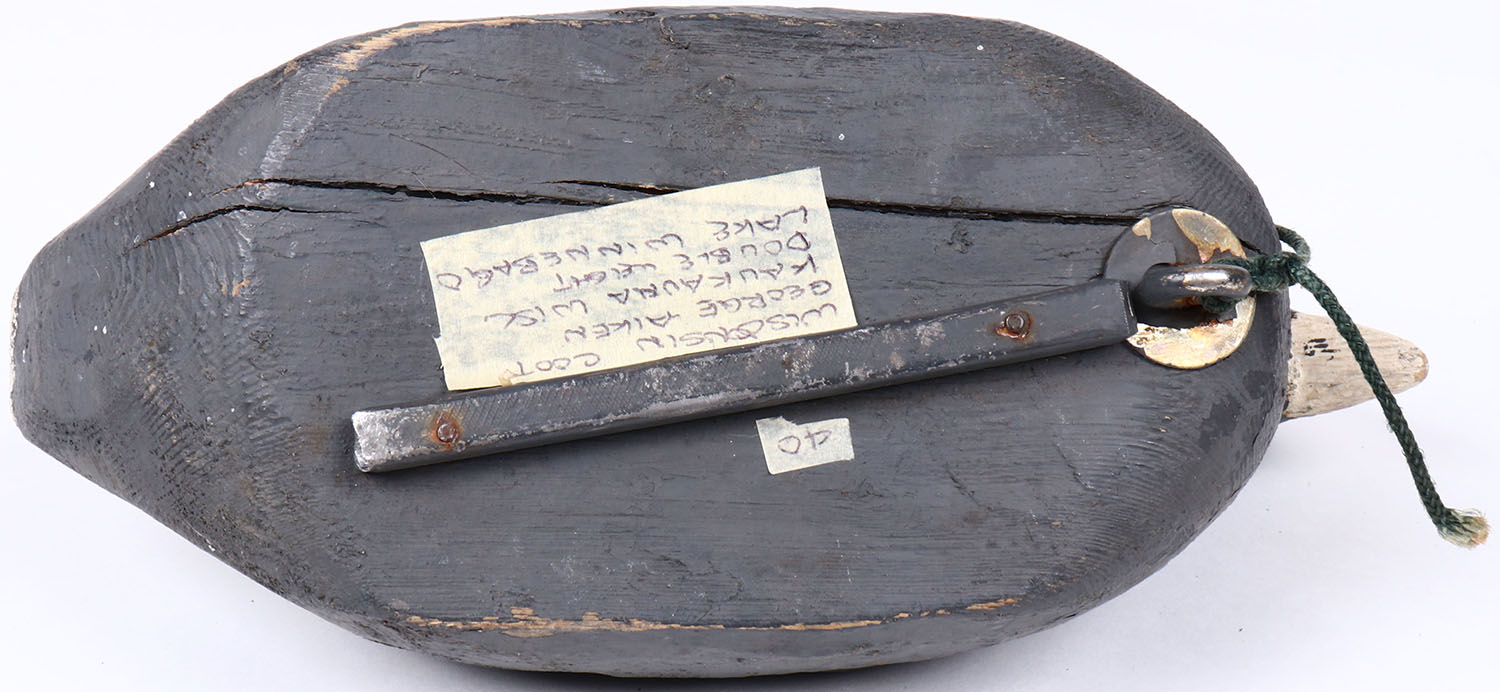 WISCONSIN COOT
GEORGE AIKEN
KAUKAUNA WISC
DOUBLE WEIGHT
LAKE WINNEBAGO
40